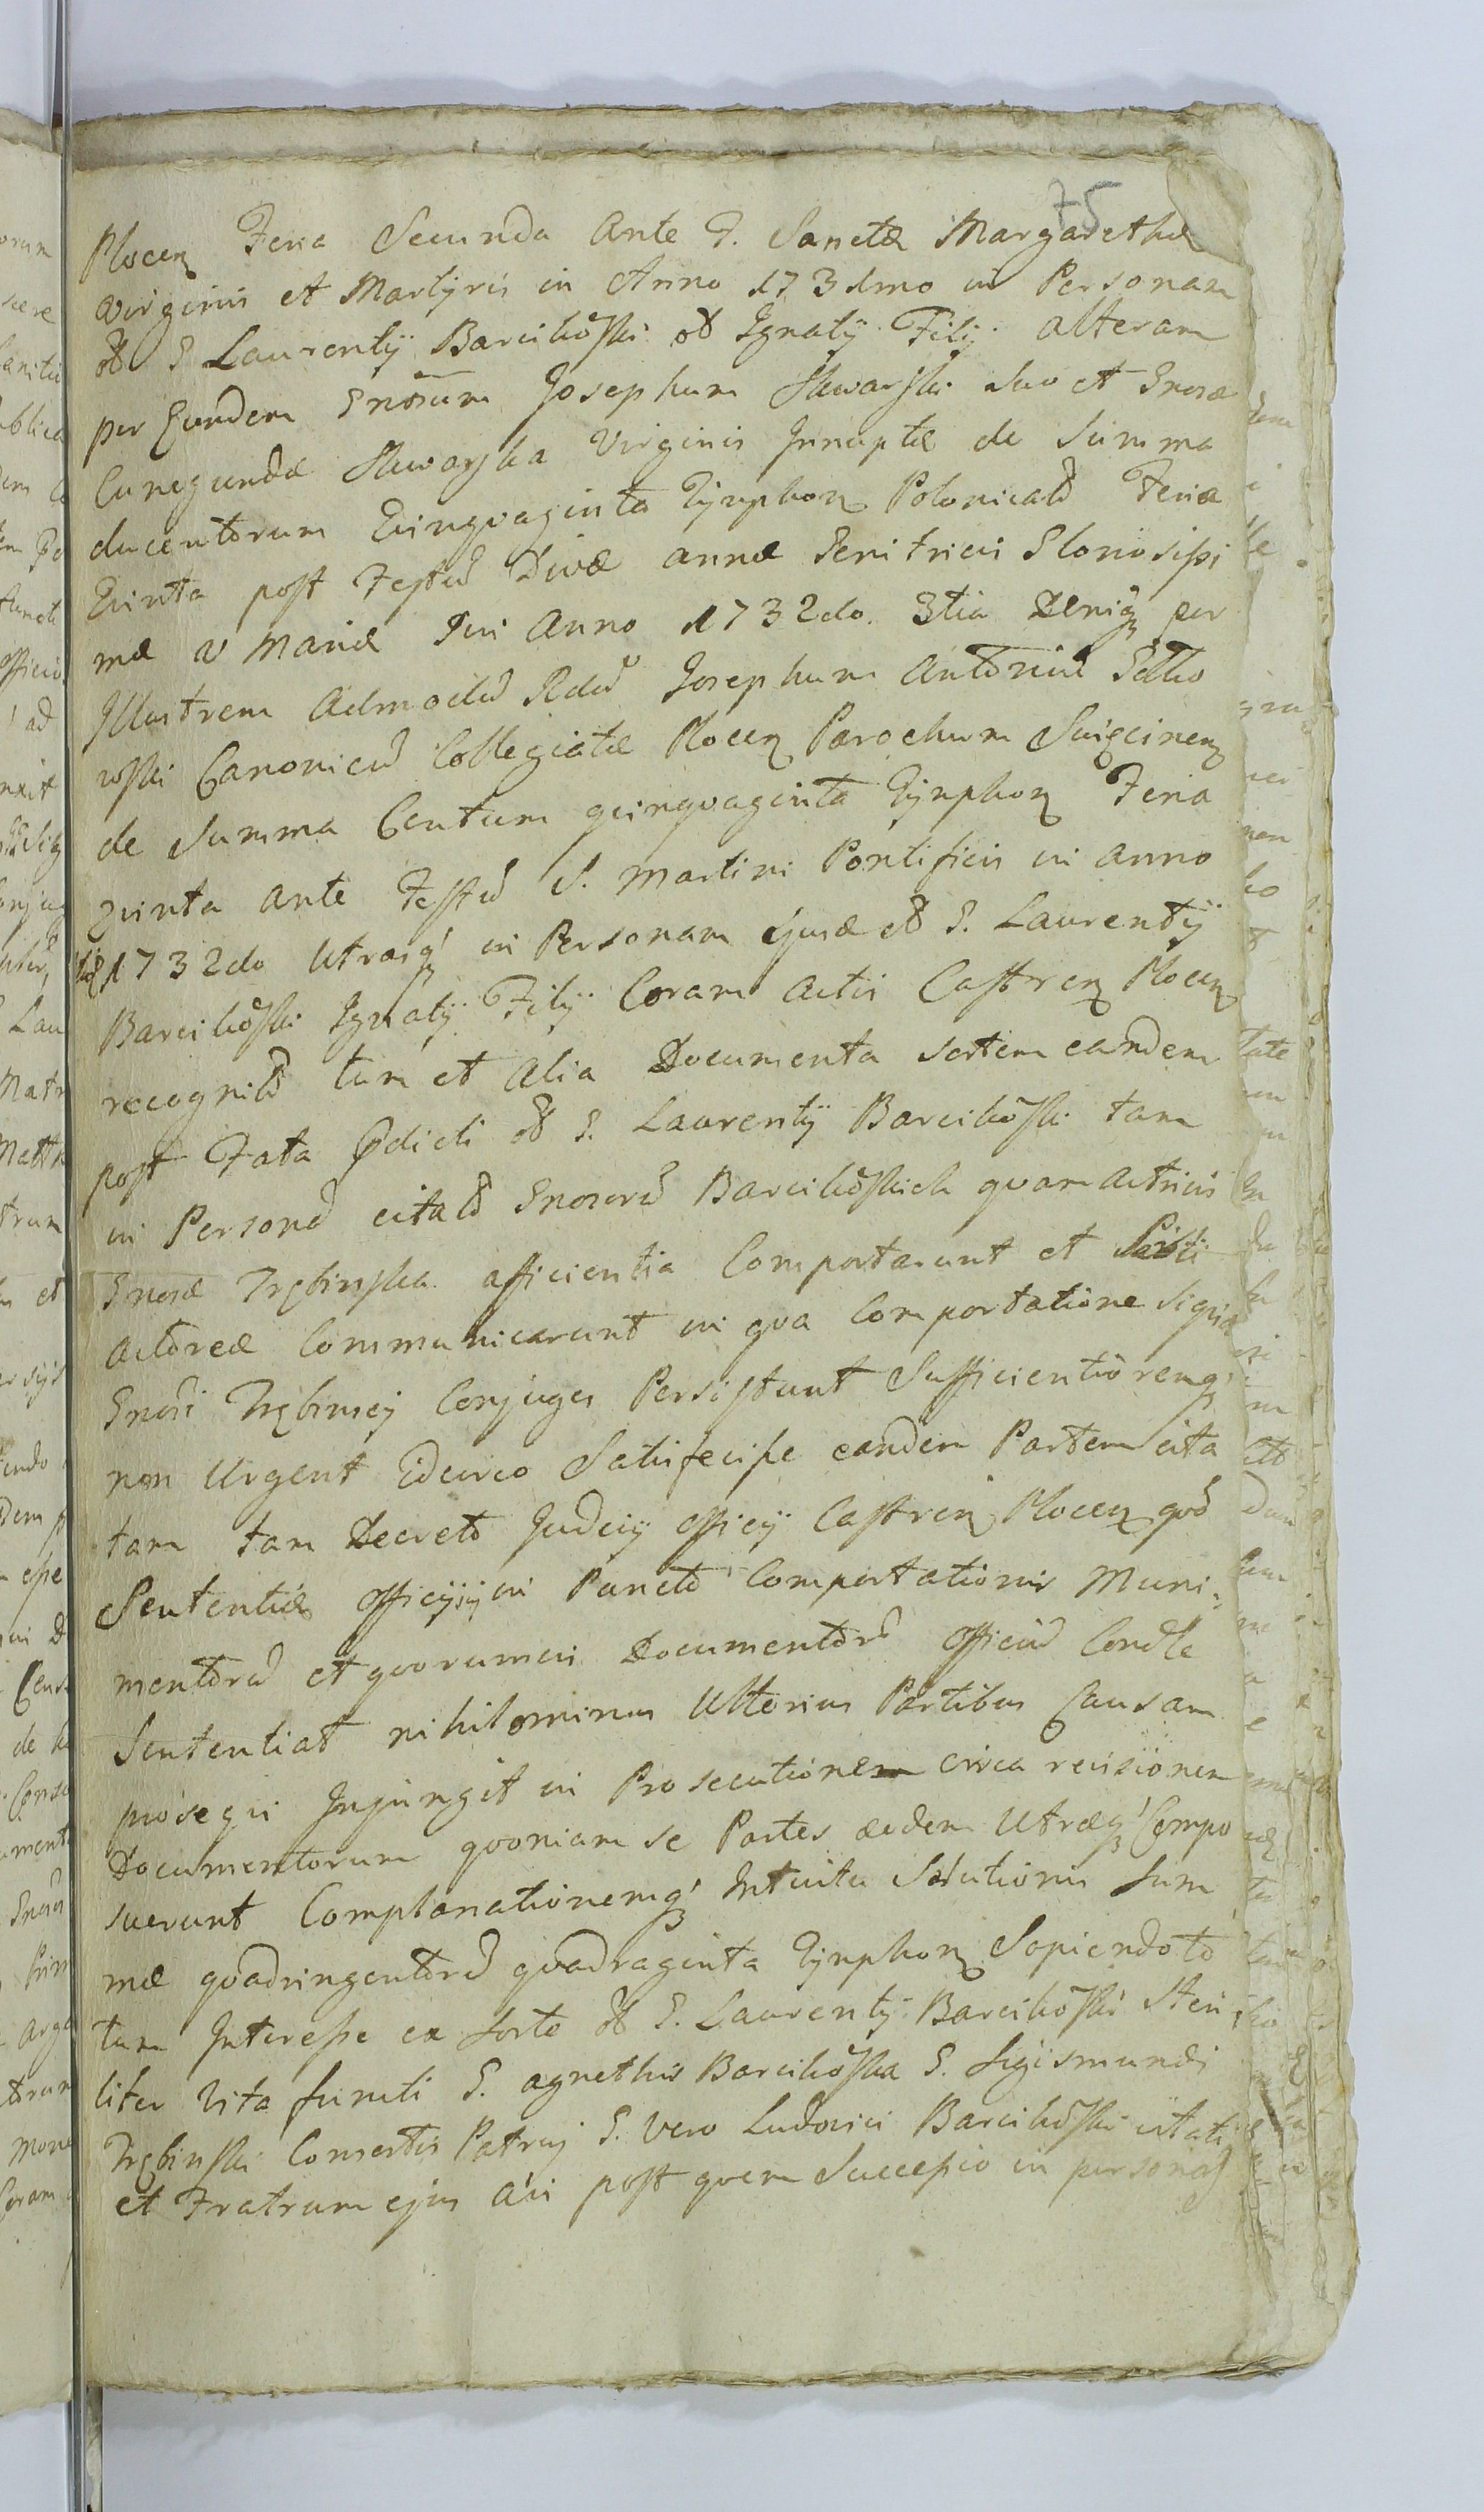 75
Plocen Feria Secunda Ante F. Sanctæ Margarethæ
Virginis et Martyris in Anno 1731mo in Personam
ol G Laurentÿ Barcikoski ol Ignatÿ Filÿ alteram
per Eundem Gnosum Josephum Skwarski suo et Gnosæ
Cunegundæ Skwarska Virginis Innuptæ de Summa
ducentorum Qvinqvaginta Tynphon Polonicaliu Feria
Qvinta post Festu Divæ Annæ Genitricis Gloriosissi
mæ V Mariæ Qui Anno 1732do. 3tia Deniq per
Illustrem Admodu Rdu Josephum Antoniu
wski Canonicu Collegiatæ Plocen Parochum Swięcinen
de Summa Centum qvinqvaginta Tynphon Feria
qvinta Ante Festu S. Martini Pontificis in Anno
1732do Utrasq in Personam ejusde ol G. Laurentÿ
Barcikoski Ignatÿ Filÿ Coram Actis Castren Plocen
recognitu tum et Alia Documenta sortem eandem
post Fata pdicti ol G. Laurentÿ Barcikoski tam
in Personas citatu Gnosoru Barcikoskich qvam Actricis
Gnosæ Trębinska afficientia Comportarunt et Parti
Actoreæ Communicarunt in qva Comportatione siqui
Gnosi Trębinscy Conjuges Persistunt Sufficientioremq
non Urgent Idcirco Satisfecisse eandem Partem cita
tam tam Decreto Judicÿ Officÿ Castren Plocen qvo
Sententiæ Officÿ in Puncto Comportationis Muni
mentoru et qvorumvis Documentoru Officiu
Sententiat nihilominus Ulterius Partibus Causam
proseqvi Injungit in Prosecutionem circa revisionem
Documentorum qvoniam se Partes ædem Utræq Compo
suerunt Complanationemq Intuitu Solutionis Sum
mæ qvadringentoru qvadraginta Tynphon Sopiendo to
tum Interesse ex sorte ol G. Laurentÿ Barcikoski steri
liter Vita functi G. Agnethis Barcikoska G. Sigismundi
Trębinski Consortis Patrui G. Vero Ludovici Barcikoski citati
et Fratrum ejus avi post qvem Successio in personas